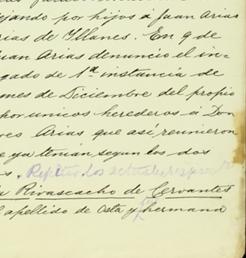 jando por hijos á Juan Arias
rias de Illanes. En 9 de
uan Arias denunció el in-
gado de 1ª instancia de
mes de Diciembre del propio
por unicos herederos á Don
res Arias que asi reunieron
e ya tenian segun los dos
s. Repetir los
Rivascacho de Cervantes
apellido de Osta y hermana